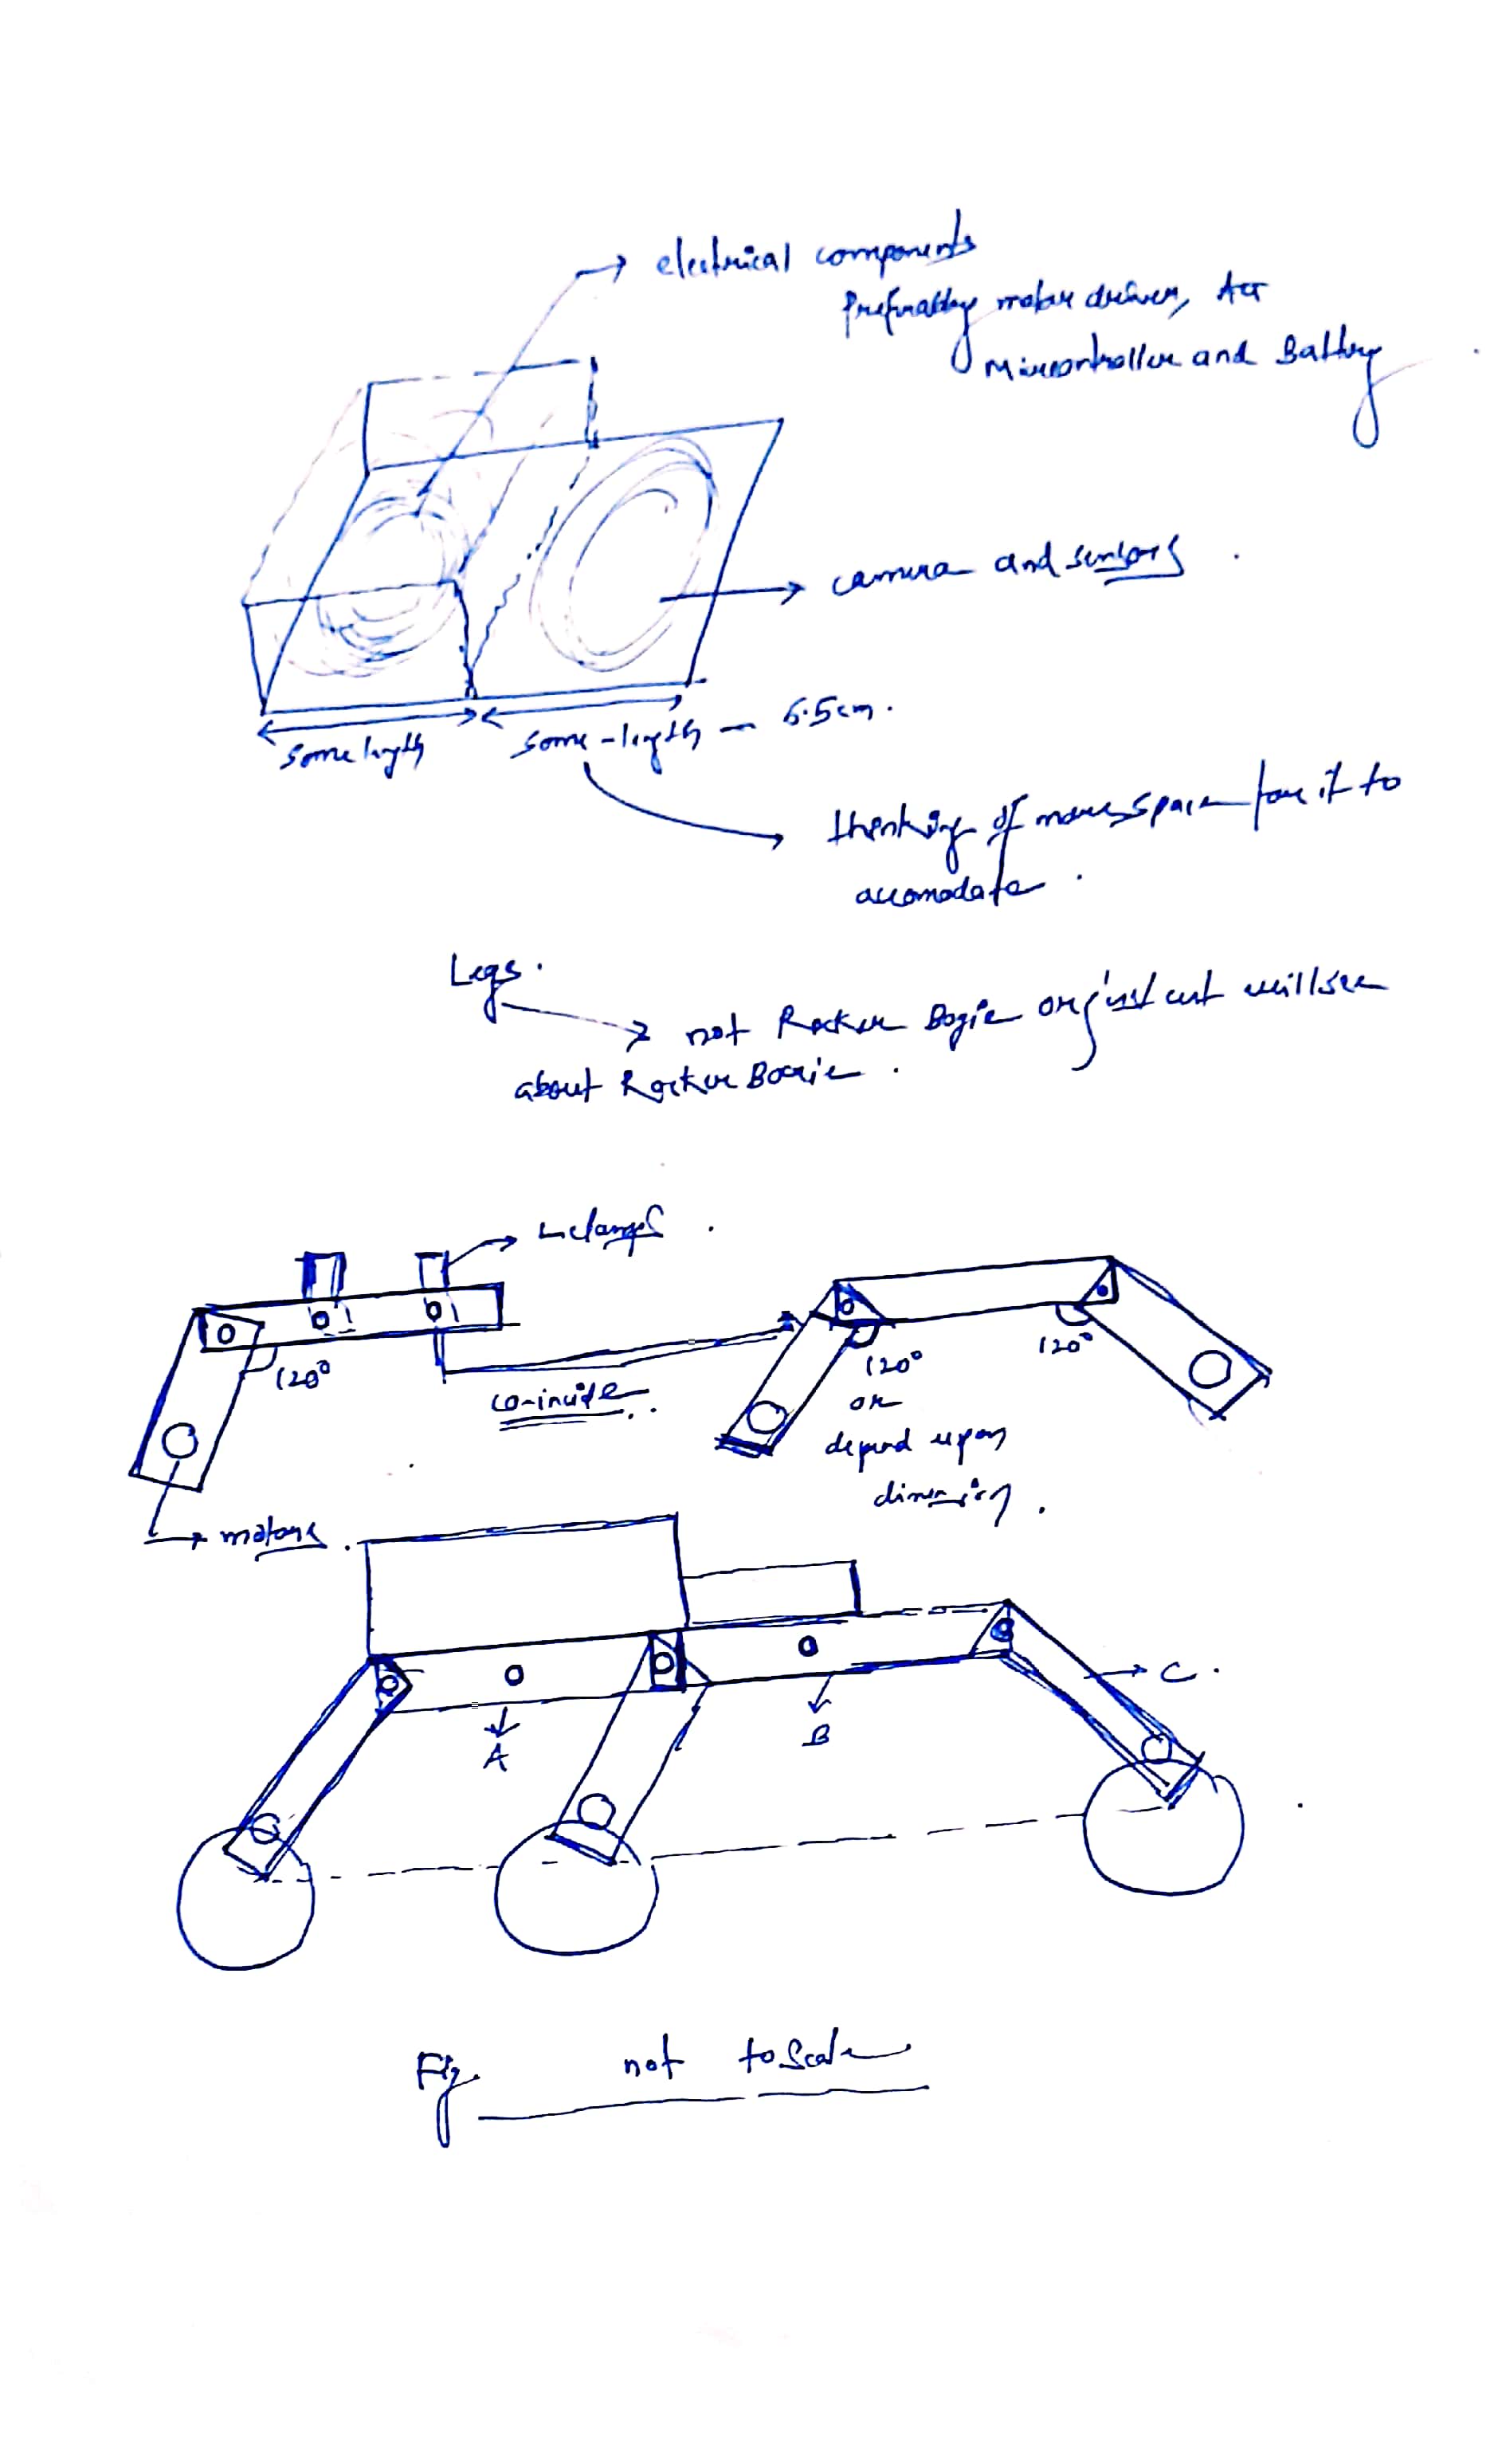 electrical components
Preferably motor drivers,
Microcontroller and Battery
camera and sensors.
some length
some-length — 5.5cm.
thinking of more space for it to
accomodate.
Legs.
not Rocker Bogie or just will see
about Rocker Bogie.
clamps.
120°
co-incide..
120°
or
depend upon
dimension.
120°
motors.
A
B
C.
Fig not to Scale